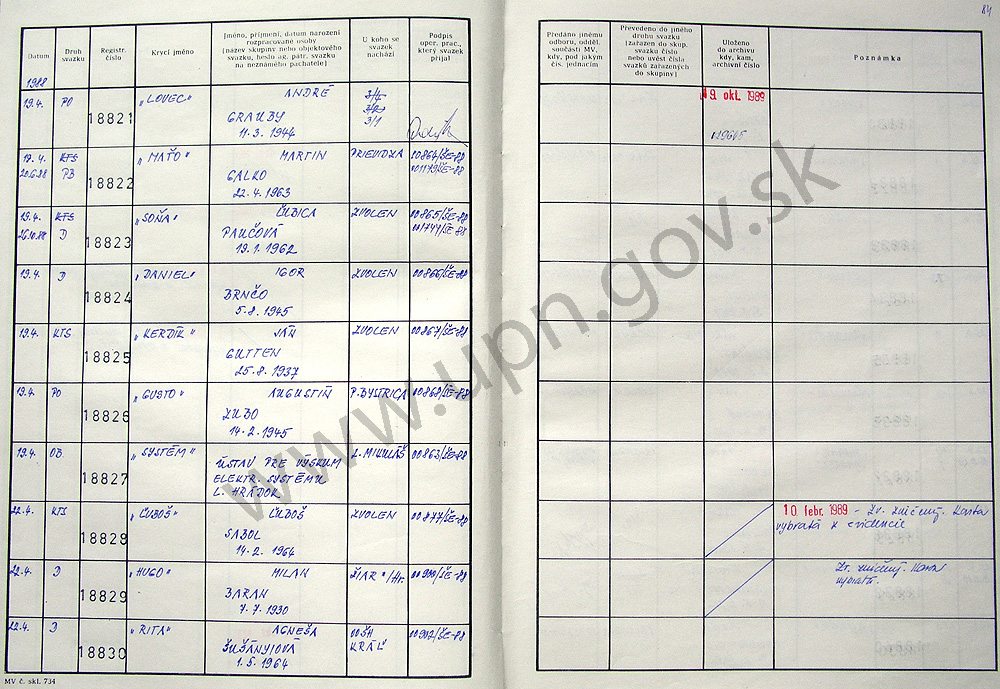 84
Datum
Druh svazku
Registr. číslo
Krycí jméno
Jméno, příjmení, datum narození rozpracované osoby (název skupiny nebo objektového svazku, heslo ag. pátr. svazku na neznámého pachatele)
U koho se svazek nachází
Podpis oper. prac., který svazek přijal
Předáno jinému odboru, odděl. součásti MV, kdy, pod jakým čís. jednacím
Převedeno do jiného druhu svazku (zařazen do skup. svazku číslo nebo uvést čísla svazků zařazených do skupiny)
Uloženo do archivu kdy, kam, archivní číslo
Poznámka
1988
19.4. PO 18821 „LOVEC" ANDRÉ
GRAUBY
11.3. 1944
3/4
3/2
3/1
19. okt. 1989
19.4. KTS 18822 „MAŤO" MARTIN PRIEVIDZA 00864/ŠE-88
20.6.88 PB GALKO 001179/ŠE-88
22.4. 1963
19.4. KTS 18823 „SOŇA" ĽUBICA ZVOLEN 00865/ŠE-88
26.10.88 D PAUČOVÁ 001744/ŠE-88
19.1. 1962
19.4. D 18824 „DANIEL" IGOR ZVOLEN 00866/ŠE-88
BRNČO
5.8. 1945
19.4. KTS 18825 „KERDÍK" JÁN ZVOLEN 00867/ŠE-88
GUTTEN
25.8. 1937
19.4. PO 18826 „GUSTO" AUGUSTÍN P. BYSTRICA 00868/ŠE-88
ZUBO
14.2. 1945
19.4. OB 18827 „SYSTÉM" L. MIKULÁŠ 00863/ŠE-88
ÚSTAV PRE VÝSKUM
ELEKTR. SYSTÉMU
L. HRÁDOK
22.4. KTS 18828 „ĽUBOŠ" ĽUBOŠ ZVOLEN 00877/ŠE-88
SABOL
14.2. 1964
10 febr. 1989 - Zv. zničený. Karta
vybratá z evidencie
22.4. D 18829 „HUGO" MILAN ŽIAR n/Hr.
BARAN
7.7. 1930
Zv. zničený.
22.4. D 18830 „RITA" AGNEŠA 00902/ŠE-88
ŠUŠÁNYIOVÁ KRÁĽ
1.5. 1964
MV č. skl. 734
www.upn.gov.sk